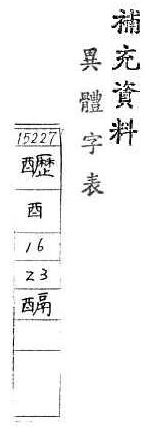 補充資料
異體字表
15227
酉
16
23